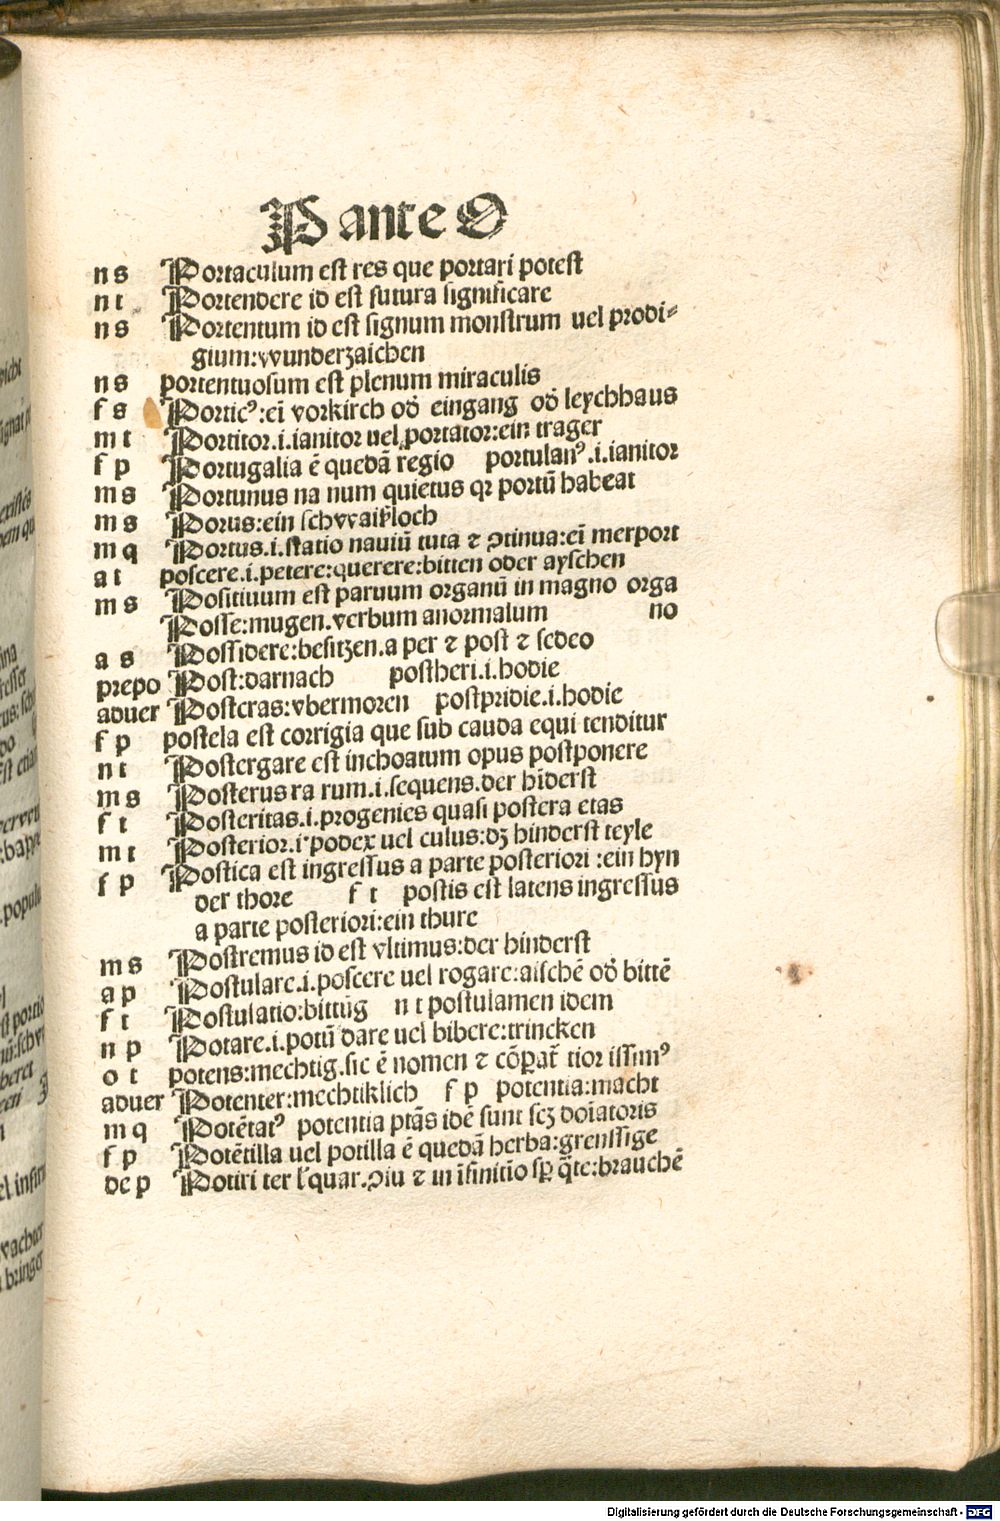 P ante O
n s Portaculum est res que portari potest
n t Portendere id est futura significare
n s Portentum id est signum monstrum uel prodi⸗
gium:vvunderzaichen
n s portentuosum est plenum miraculis
f s Porticꝰ:eī vorkirch od̕ eingang od̕ leychhaus
m t Portitor.i.ianitor uel portator:ein trager
f p Portugalia ē quedā regio portulanꝰ.i.ianitor
m s Portunus na num quietus qꝛ portū habeat
m s Porus:ein schvvaißloch
m q Portus.i.statio nauiū tuta ⁊ ↄtinua:eī merport
a t poscere.i.petere:querere:bitten oder ayschen
m s Positiuum est paruum organū in magno orga
Posse:mugen.verbum anormalum no
a s Possidere:besitzen.a per ⁊ post ⁊ sedeo
prepo Post:darnach postheri.i.hodie
aduer Postcras:vbermoren postpridie.i.hodie
f p postela est corrigia que sub cauda equi tenditur
n t Postergare est inchoatum opus postponere
m s Posterus ra rum.i.sequens.der hīderst
f t Posteritas.i.progenies quasi postera etas
m t Posterior.i.podex uel culus:dʒ hinderst teyle
f p Postica est ingressus a parte posteriori :ein hyn
der thore f t postis est latens ingressus
a parte posteriori:ein thure
m s Postremus id est vltimus:der hinderst
a p Postulare.i.poscere uel rogare:aischē od̕ bittē
f t Postulatio:bittūg n t postulamen idem
n p Potare.i.potū dare uel bibere:trincken
o t potens:mechtig.sic ē nomen ⁊ cōꝑat̄ tior issimꝰ
aduer Potenter:mechtiklich f p potentia:macht
m q Potētatꝰ potentia ptās idē sunt scʒ doīatoris
f p Potētilla uel potilla ē quedā herba:grenssige
de p Potiri ter l̕ quar.ↄiu ⁊ in īfinitio sꝑ q̄te:brauchē
Digitalisierung gefördert durch die Deutsche Forschungsgemeinschaft - DFG